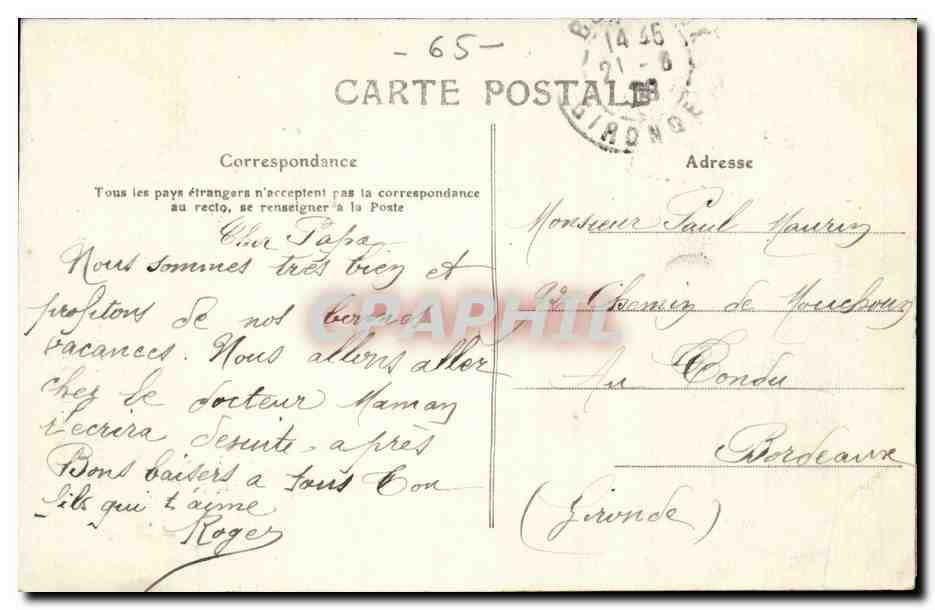 - 65 -
14 45
21 - 6
GIRONDE
CARTE POSTALE
Correspondance
Tous les pays étrangers n'acceptent pas la correspondance
au recto, se renseigner à la Poste
Cher Papa
Nous sommes très bien et
profitons de nos bonnes
vacances. Nous allons aller
chez le docteur Maman
t'ecrira desuite après
Bons baisers a tous Ton
fils qui t'aime
Roger
Adresse
Monsieur Paul Maurin
Chemin de
Au Tondu
Bordeaux
(Gironde)
CPAPHIL